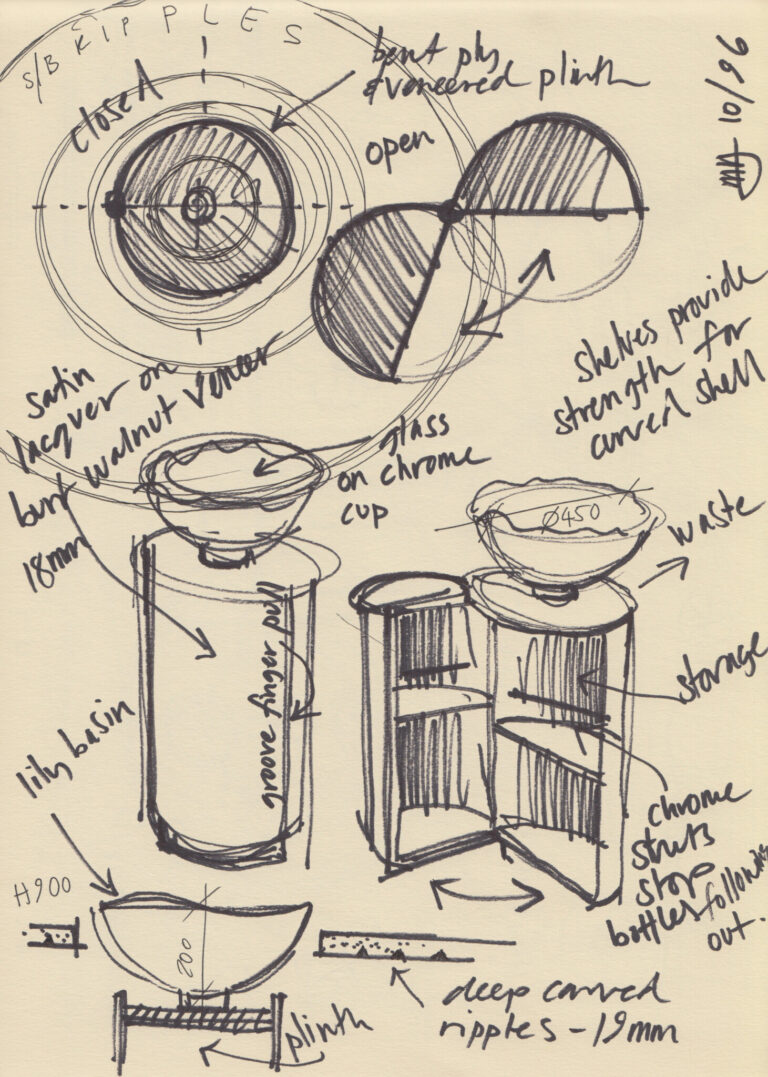 S/B RIPPLES
closed
bent ply
& veneered plinth
open
10/96
satin
lacquer on
burr walnut veneer
18mm
glass
on chrome
cup
shelves provide
strength for
curved shell
Ø450
waste
groove finger pull
storage
lily basin
chrome
struts
stop
bottles following
out.
H900
200
plinth
deep carved
ripples - 19mm